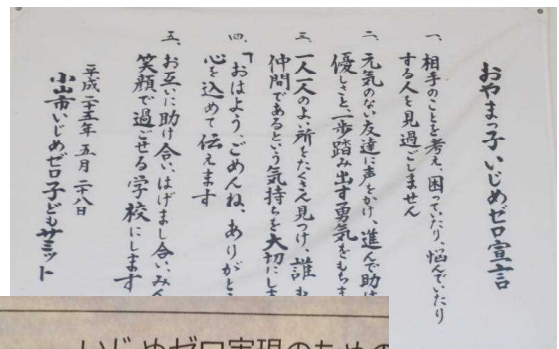 おやまっ子いじめゼロ宣言
一、相手のことを考え、困っていたり、悩んでいたり
する人を見過ごしません
二、元気のない友達に声をかけ、進んで助け
優しさと、一歩踏み出す勇気をもちま
三、一人一人のよい所をたくさん見つけ、誰も
仲間であるという気持ちを大切にしま
四、「おはよう、ごめんね、ありがと
心を込めて伝えます
五、お互いに助け合い、はげまし合い、みん
笑顔で過ごせる学校にします
平成二十五年五月二十八日
小山市いじめゼロ子どもサミット
いじめゼロ実現のための